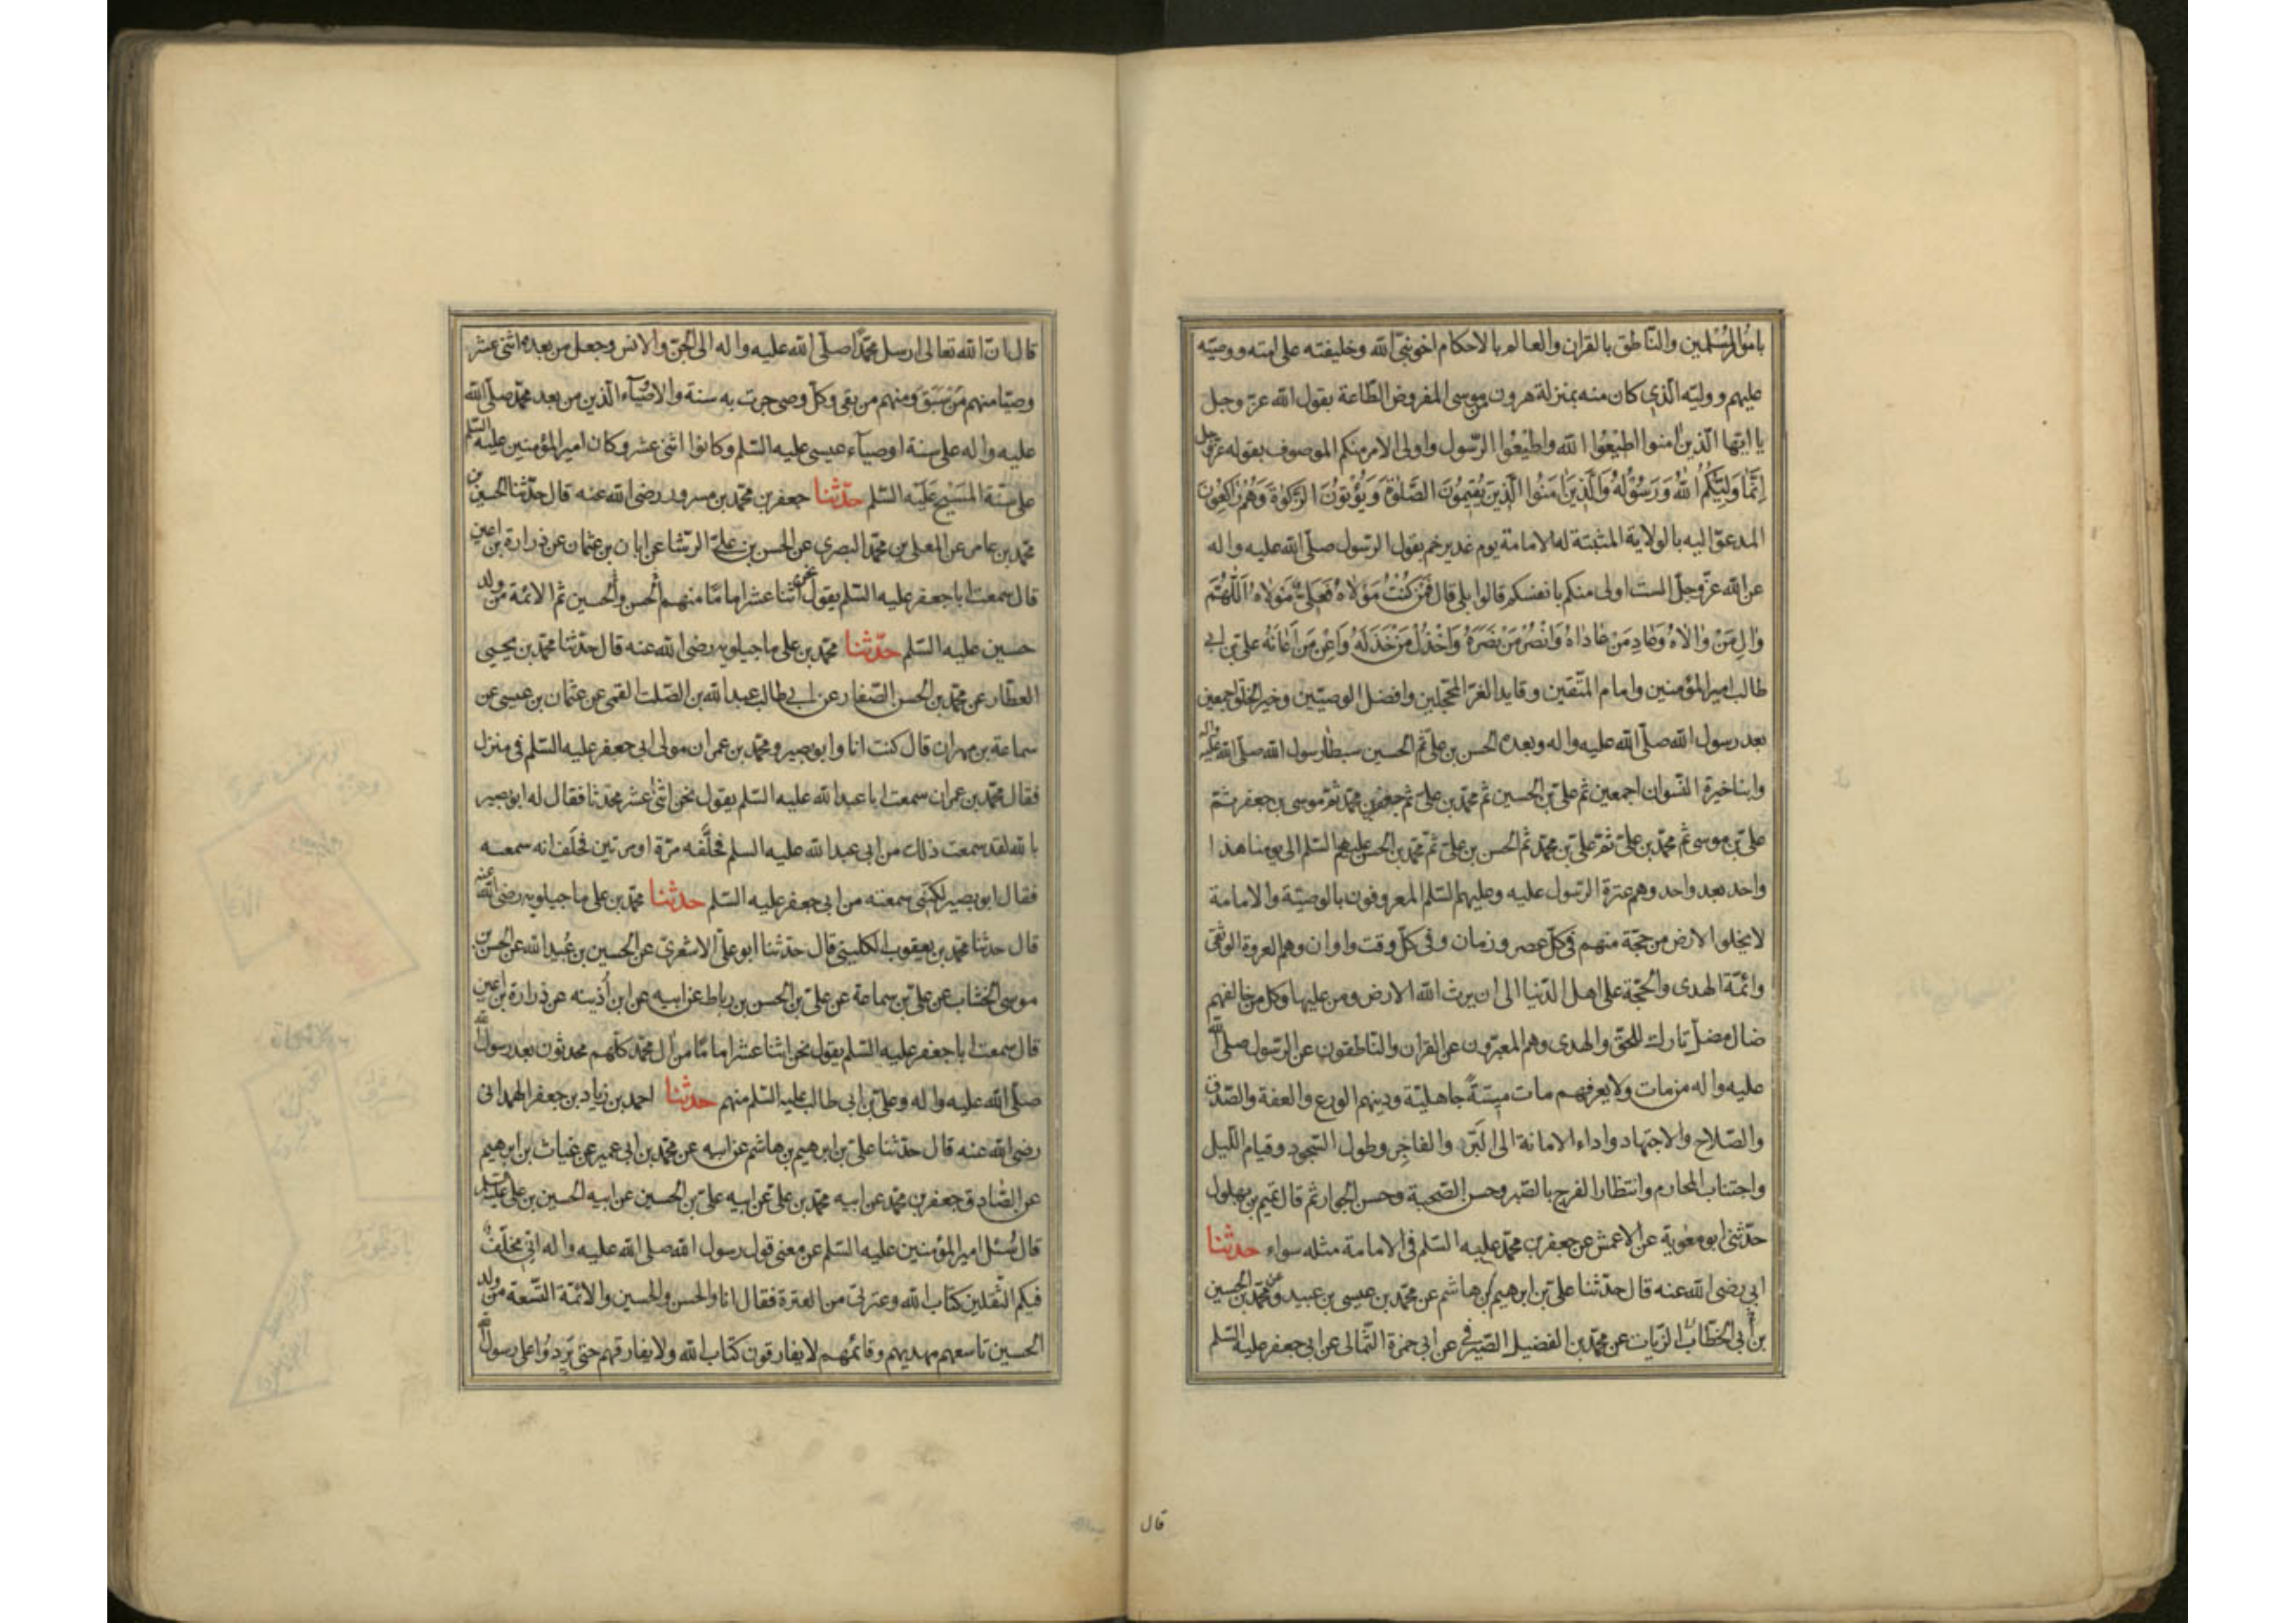 بامور المسلمين والناطق بالقران والعالم بالاحكام اخو نبی الله وخليفته على امته ووصيه
عليهم ووليه الذي كان منه بمنزلة هرون من موسى المفروض الطاعة بقول الله عز وجل
يا ايها الذين امنوا اطيعوا الله واطيعوا الرسول واولى الامر منكم الموصوف بقوله عز وجل
اِنَّمَا وَلِيُّكُمُ اللهُ وَرَسُولُهُ وَالَّذِينَ اٰمَنُوا الَّذِينَ يُقِيمُونَ الصَّلٰوةَ وَيُؤْتُونَ الزَّكٰوةَ وَهُمْ رَاكِعُونَ
المدعو اليه بالولاية المثبتة له الامامة يوم غدير خم بقول الرسول صلى الله عليه واله
عن الله عز وجل الست اولى منكم بانفسكم قالوا بلى قال فَمَنْ كُنْتُ مَوْلَاهُ فَعَلِيٌّ مَوْلَاهُ اَللّٰهُمَّ
وَالِ مَنْ وَالَاهُ وَعَادِ مَنْ عَادَاهُ وَانْصُرْ مَنْ نَصَرَهُ وَاخْذُلْ مَنْ خَذَلَهُ وَاَعِنْ مَنْ اَعَانَهُ على بن ابى
طالب امير المؤمنين وامام المتقين وقايد الغر المحجلين وافضل الوصيين وخير الخلق اجمعين
بعد رسول الله صلى الله عليه واله وبعده الحسن بن على ثم الحسين سبطا رسول الله صلى الله عليه واله
وابنا خيرة النسوان اجمعين ثم على بن الحسين ثم محمد بن على ثم جعفر بن محمد ثم موسى بن جعفر ثم
على بن موسى ثم محمد بن على ثم على بن محمد ثم الحسن بن على ثم محمد بن الحسن عليهم السلم الى يومنا هذا
واحد بعد واحد وهم عترة الرسول عليه وعليهم السلم المعروفون بالوصية والامامة
لا يخلوا الارض من حجة منهم فى كل عصر وزمان وفى كل وقت واوان وهم العروة الوثقى
وائمة الهدى والحجة على اهل الدنيا الى ان يرث الله الارض ومن عليها وكل من خالفهم
ضال مضل تارك للحق والهدى وهم المعبرون عن القران والناطقون عن الرسول صلى الله
عليه واله من مات ولا يعرفهم مات ميتةً جاهلية ودينهم الورع والعفة والصدق
والصلاح والاجتهاد واداء الامانة الى البَر والفاجِر وطول السجود وقيام الليل
واجتناب المحارم وانتظار الفرج بالصبر وحسن الصحبة وحسن الجوار ثم قال تميم بن بهلول
حدثنى ابو معوية عن الاعمش عن جعفر بن محمد عليه السلم فى الامامة مثله سواء حدثنا
ابى رضى الله عنه قال حدثنا على بن ابرهيم بن هاشم عن محمد بن عيسى بن عبيد وعن محمد بن الحسين
بن أبى الخطاب الزيات عن محمد بن الفضيل الصيرفى عن ابى حمزة الثمالى عن ابى جعفر عليه السلم
قال
قال ان الله تعالى ارسل محمدًا صلى الله عليه واله الى الجن والانس وجعل من بعده اثنى عشر
وصيا منهم مَن سَبَقَ ومنهم من بقى وكل وصى جرت به سنة والاوصياء الذين من بعد محمد صلى الله
عليه واله على سنة اوصياء عيسى عليه السلم وكانوا اثنى عشر وكان امير المؤمنين عليه السلم
على سنة المسيح عليه السلم حدثنا جعفر بن محمد بن مسرور رضى الله عنه قال حدثنا الحسين بن
محمد بن عامر عن المعلى بن محمد البصرى عن الحسن بن على الوشا عن ابان بن عثمان عن زرارة بن اعين
قال سمعت ابا جعفر عليه السلم يقول نحن اثنا عشر اماما منهم الحسن والحسين ثم الائمة من ولد
حسين عليه السلم حدثنا محمد بن على ماجيلويه رضى الله عنه قال حدثنا محمد بن يحيى
العطار عن محمد بن الحسن الصفار عن ابى طالب عبد الله بن الصلت القمى عن عثمان بن عيسى عن
سماعة بن مهران قال كنت انا وابو بصير ومحمد بن عمران مولى ابى جعفر عليه السلم فى منزل
فقال محمد بن عمران سمعت ابا عبد الله عليه السلم يقول نحن اثنى عشر محدثا فقال له ابو بصير
بالله لقد سمعت ذلك من ابى عبد الله عليه السلم فحلَّفه مرة او مرتين فحلف انه سمعه
فقال ابو بصير لكنى سمعته من ابى جعفر عليه السلم حدثنا محمد بن على ماجيلويه رضى الله عنه
قال حدثنا محمد بن يعقوب الكلينى قال حدثنا ابو على الاشعرى عن الحسين بن عُبيد الله عن الحسن بن
موسى الخشاب عن على بن سماعة عن على بن الحسن بن رباط عن ابيه عن ابن أذينه عن زرارة بن اعين
قال سمعت ابا جعفر عليه السلم يقول نحن اثنا عشر اماما من ال محمد كلهم محدثون بعد رسول الله
صلى الله عليه واله وعلى بن ابى طالب عليه السلم منهم حدثنا احمد بن زياد بن جعفر الهمدانى
رضى الله عنه قال حدثنا على بن ابرهيم بن هاشم عن ابيه عن محمد بن ابى عمير عن غياث بن ابرهيم
عن الصادق جعفر بن محمد عن ابيه محمد بن على عن ابيه على بن الحسين عن ابيه الحسين بن على عليه السلم
قال سُئل امير المؤمنين عليه السلم عن معنى قول رسول الله صلى الله عليه واله انى مخلف
فيكم الثقلين كتاب الله وعترتى من العترة فقال انا والحسن والحسين والائمة التسعة من ولد
الحسين تاسعهم مهديهم وقائمهم لا يفارقون كتاب الله ولا يفارقهم حتى يَرِدُوا على رسول الله